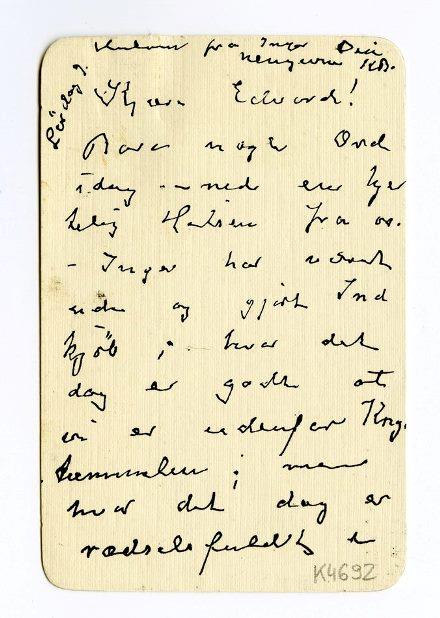 fra Inger
Din
KB.
Lørdag
Kjære Edvard!
Bare noger Ord
idag – med en hjer
telig Hilsen fra os.
– Inger har været
ude og gjort Ind
kjöb i hvor det
dog er godt at
vi er udenfor Krig.
tummelen; men
hvor det dog er
rædselsfuldt i
K4692